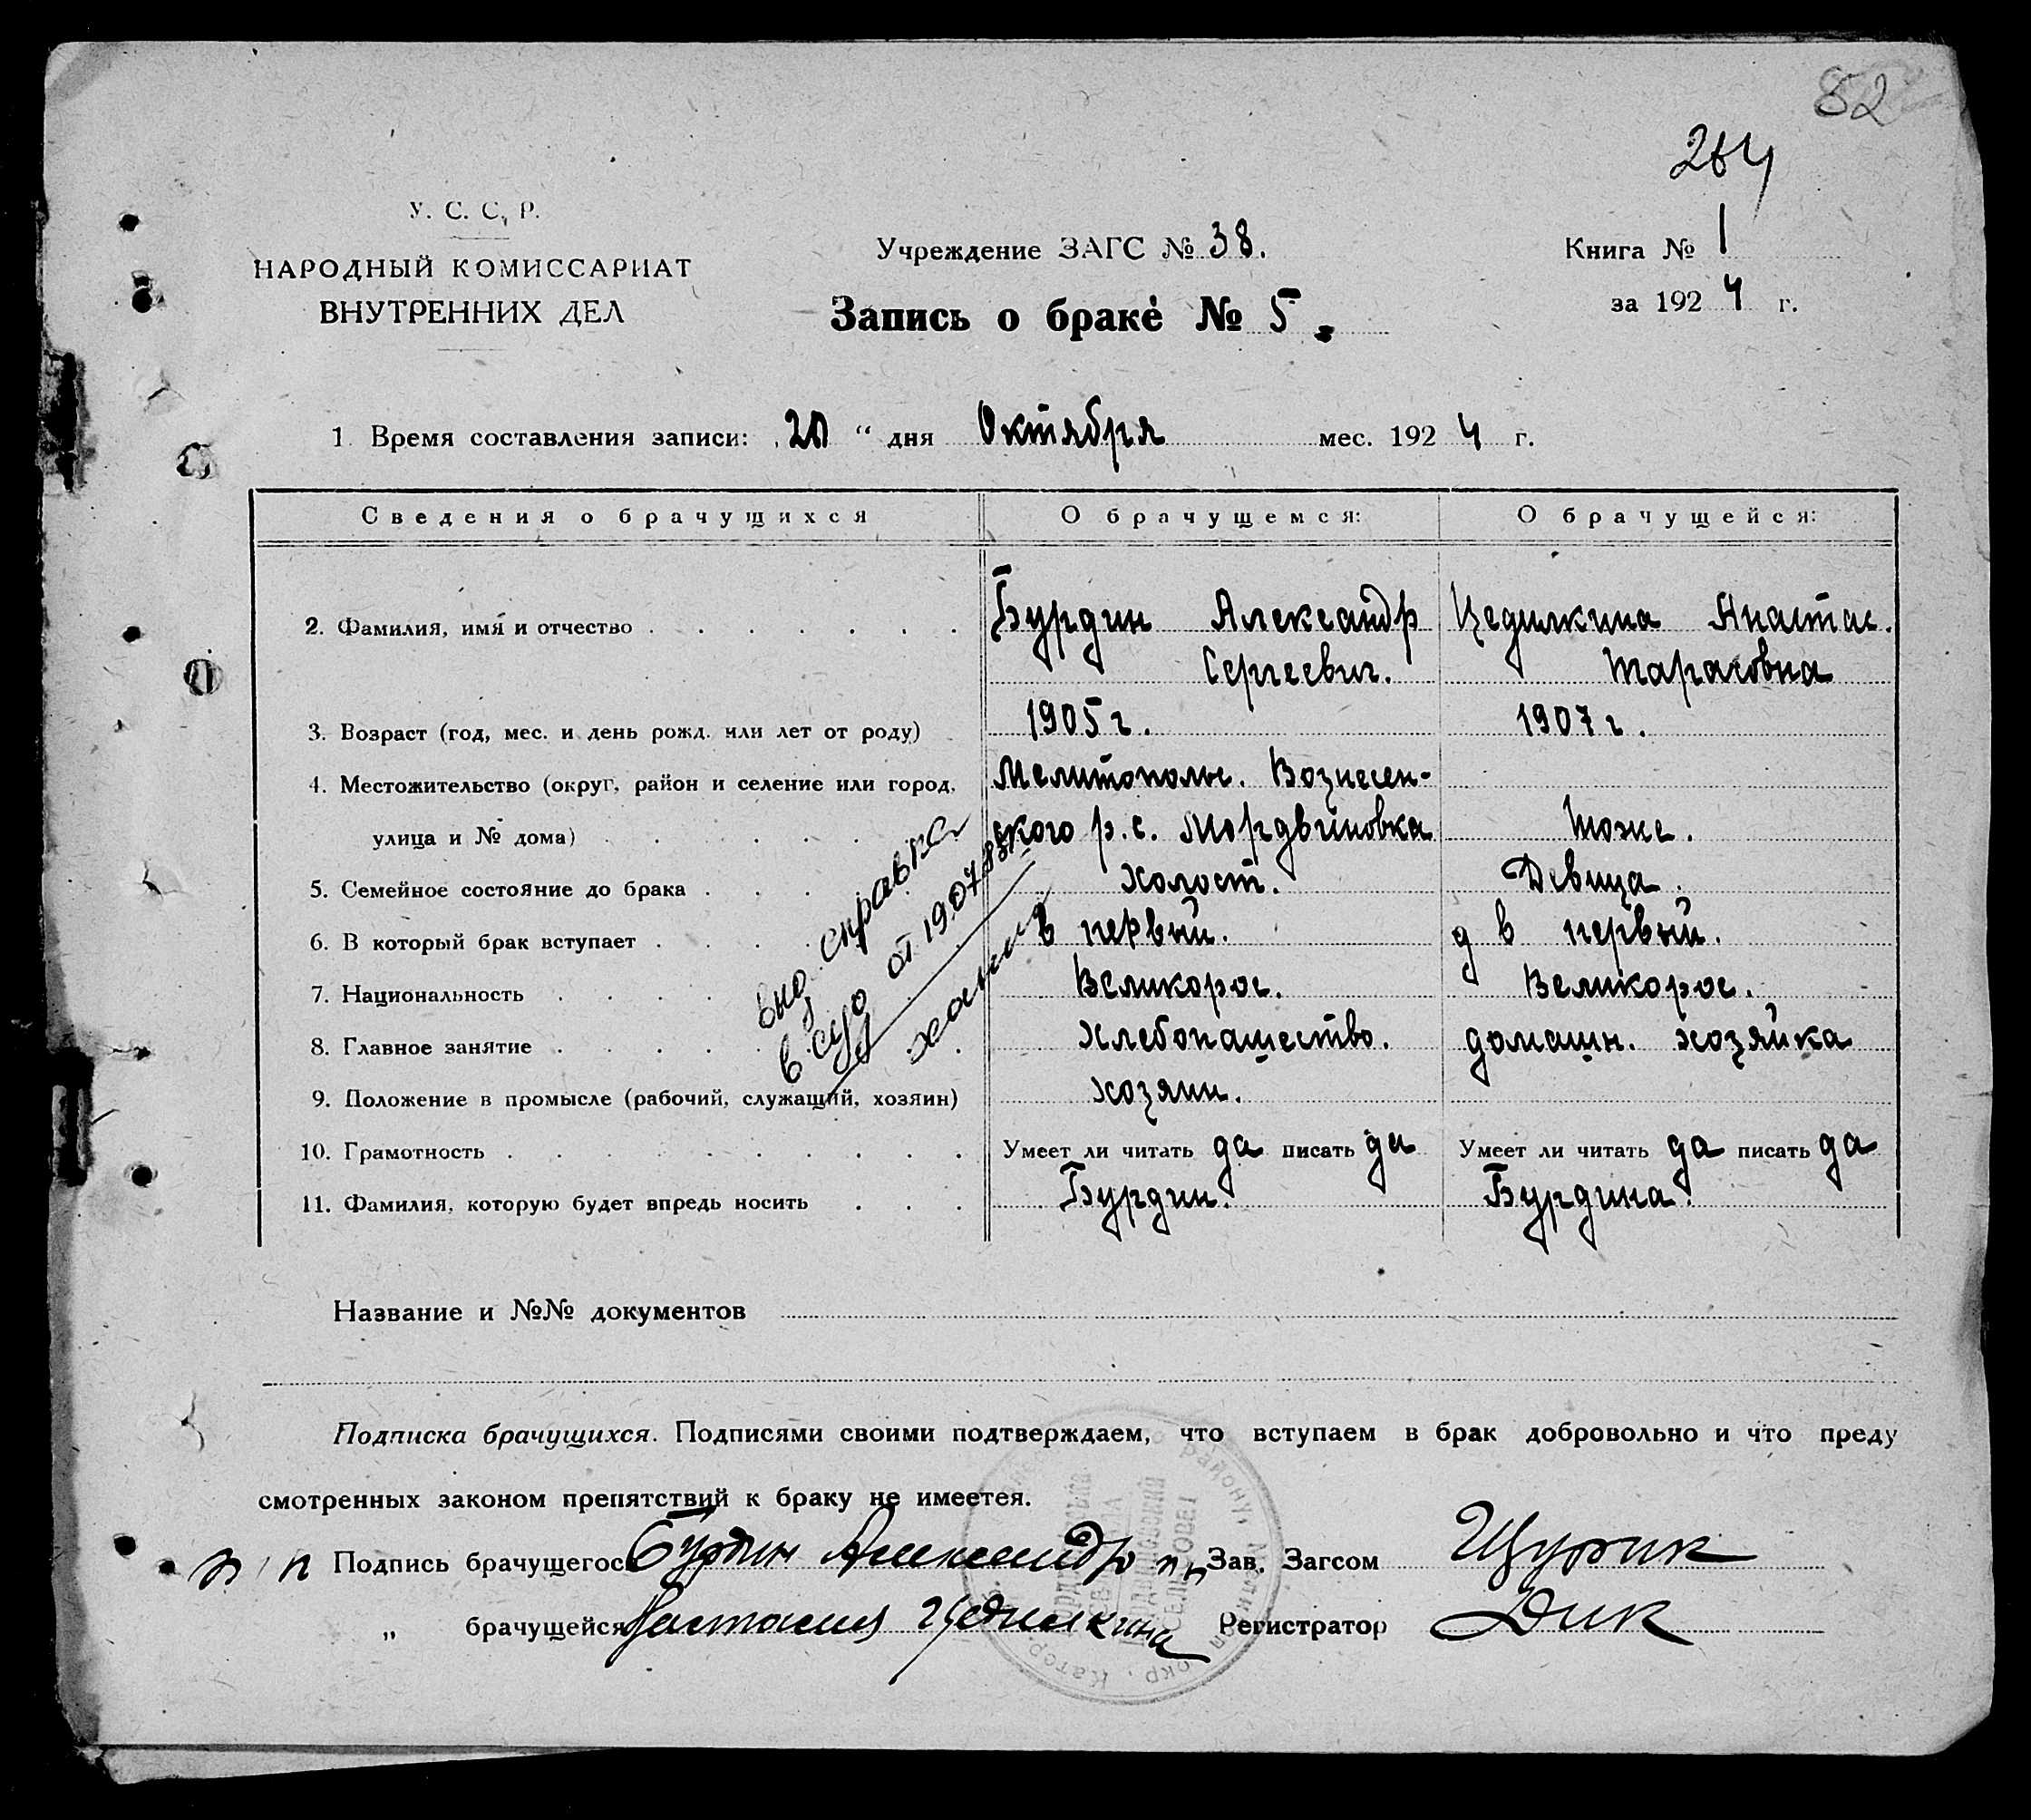 82
264
У. С. С. Р.
НАРОДНЫЙ КОМИССАРИАТ
ВНУТРЕННИХ ДЕЛ
Учреждение ЗАГС № 38.
Запись о браке № 5.
Книга № 1
за 1924 г.
1. Время составления записи: 20 “ дня Октября мес. 1924 г.
Сведения о брачущихся О брачущемся: О брачущейся:
2. Фамилия, имя и отчество Бурдин Александр Цедилкина Анастас.
Сергеевич. Тарасовна
3. Возраст (год, мес. и день рожд. или лет от роду) 1905 г. 1907 г.
4. Местожительство (округ, район и селение или город, Мелитопольс. Вознесен-
улица и № дома) ского р. с. Мордвиновка Тоже.
5. Семейное состояние до брака Холост. Девица.
6. В который брак вступает в первый. в первый.
7. Национальность Великорос. Великорос.
8. Главное занятие Хлебопашество. домашн. хозяйка
9. Положение в промысле (рабочий, служащий, хозяин) хозяин.
10. Грамотность Умеет ли читать да писать да Умеет ли читать да писать да
11. Фамилия, которую будет впредь носить Бурдин. Бурдина.
справка
в суд от
Название и №№ документов
Подписка брачущихся. Подписями своими подтверждаем, что вступаем в брак добровольно и что преду
смотренных законом препятствий к браку не имеетея.
Подпись брачущегося Бурдин Александр Зав. Загсом Щурик
„ брачущейся Настасия Цедилкина Регистратор Дик